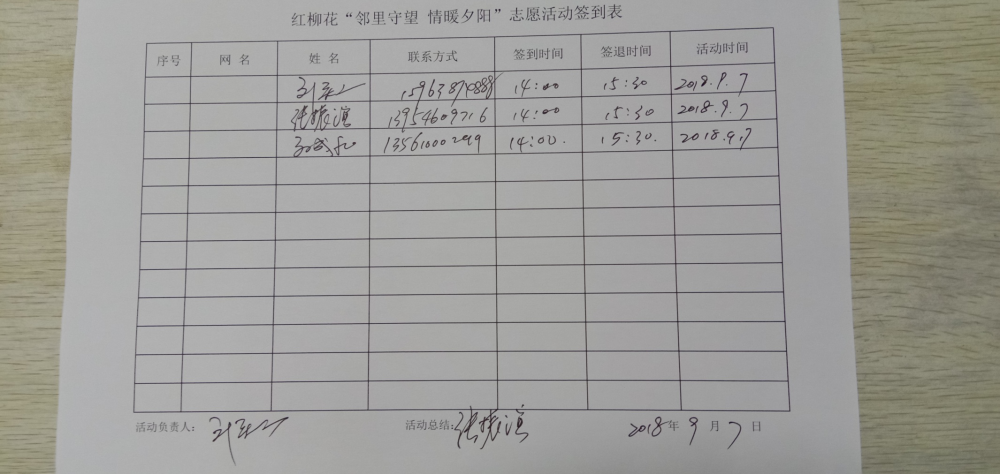 红柳花“邻里守望 情暖夕阳”志愿活动签到表
序号 网 名 姓 名 联系方式 签到时间 签退时间 活动时间
14:00 15:30 2018.9.7
张振滨 13954609716 14:00 15:30 2018.9.7
13561000299 14:00. 15:30. 2018.9.7
活动负责人: 活动总结: 张振滨 2018年 9 月 7 日